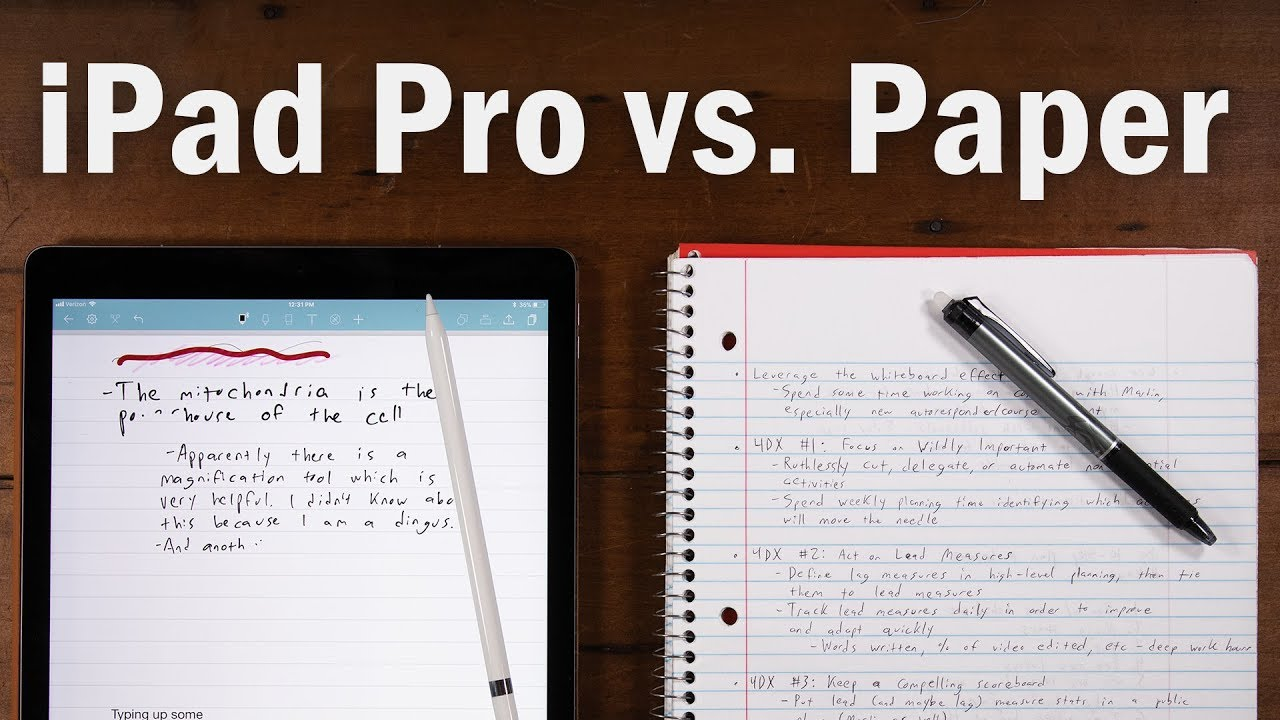 iPad Pro vs. Paper
Verizon 12:31 PM 36%
T
-The mitochondria is the
of the cell
-Apparently there is a
magnification tool which is
very helpful. I didn't know abo
this because I am a dingus.
-And anoth
Typing up some
• Leverage the whiteboard effect
-Spend some time working on with Martin,
especially new autoresponder/course
• 4DX #1: Focus on Wildly Important
-Ruthlessly cut, delegate, or automate
activities
-Spend weekly planing time identifying which
will move the needle
• 4DX #2: Act on Lead Measures
-Define lag measures in high-level planning, then tie
them to lead measures
-Track lead measures daily in order to improve
and adapt quickly
-Words written, % of video edited, etc - deep work hours
• 4DX #3: Keep a compelling scoreboard
-Put lead (and maybe lag) measure stats in a public